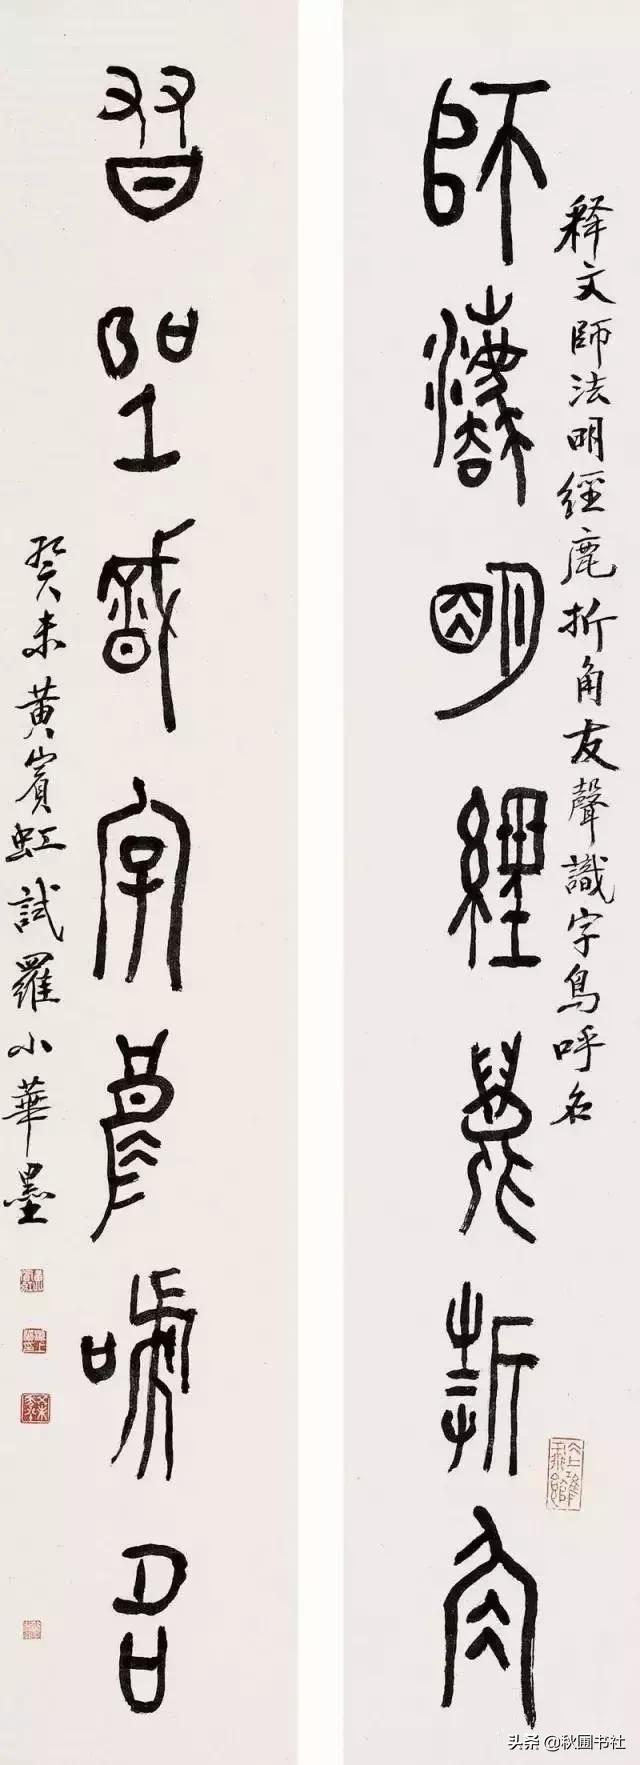 師灋明經麃折角
释文師法明經麃折角友聲識字鳥呼名
習聖識字鳥嘑名
癸未黄賓虹試羅小華墨
头条 @秋圃书社